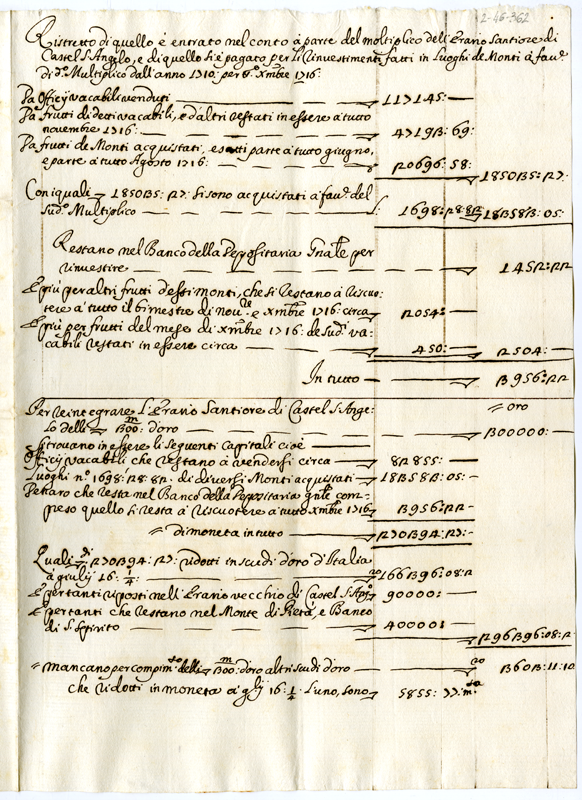 2-46-362
Ristretto di quello è entrato nel conto à parte del moltiplico dell'Erario Santiore di
Castel S. Angelo, e di quello si è pagato per li Rinvestimenti fatti in Luoghi de Monti à fau.e
di d.o Multiplico dall'anno 1710: per t.o Xmbre 1716:
Da Officij vacabili venduti 117145:
Da frutti di detti vacabili, ed'altri restati in essere à tutto
novembre 1716: 47193: 69:
Da frutti de Monti acquistati, e parte à tutto giugno,
e parte à tutto Agosto 1716: 20696: 58:
185035: 27:
Con iquali 185035: 27: si sono acquistati à fau.e del
Sud.o Multiplico L: 1698: 28: 82 183583: 05:
Restano nel Banco della Depositaria Gnale per
rinvestire 1452: 22
E più per altri frutti d'essi monti, che si restano à riscuo-
tere à tutto il 6 bimestre di Nov.re e Xmbre 1716: circa 2054:
E più per frutti del mese di Xmbre 1716: de Sud.i va-
cabili restati in essere circa 450: 2504:
In tutto 3956: 22
Per reintegrare L'Erario Santiore di Castel S. Ange: = oro
lo delli 300 m d'oro 300000:
si trovano in essere li seguenti Capitali cioè
Officij vacabili che restano à vendersi circa 82855:
Luoghi n.o 1698: 28: 82: di diversi Monti acquistati 183583: 05:
Denaro che resta nel Banco della Depositaria gnle com-
preso quello si resta à riscuotere à tutto Xmbre 1716 3956: 22
= di moneta in tutto 270394: 27:
Quali di 270394: 27: ridotti in scudi d'oro d'Italia
à giulij 16: 1/4 166396: 08: 2
E per tanti riposti nell'Erario vecchio di Castel S. Ang.o 90000:
E per tanti che restano nel Monte di Pietà, e Banco
di S. Spirito 40000:
296396: 08: 2
= mancano per compim.to delli 300 m d'oro altri scudi d'oro 3603: 11: 10
che ridotti in moneta à glij 16: 1/4 l'uno, sono 5855: 77: m.ta